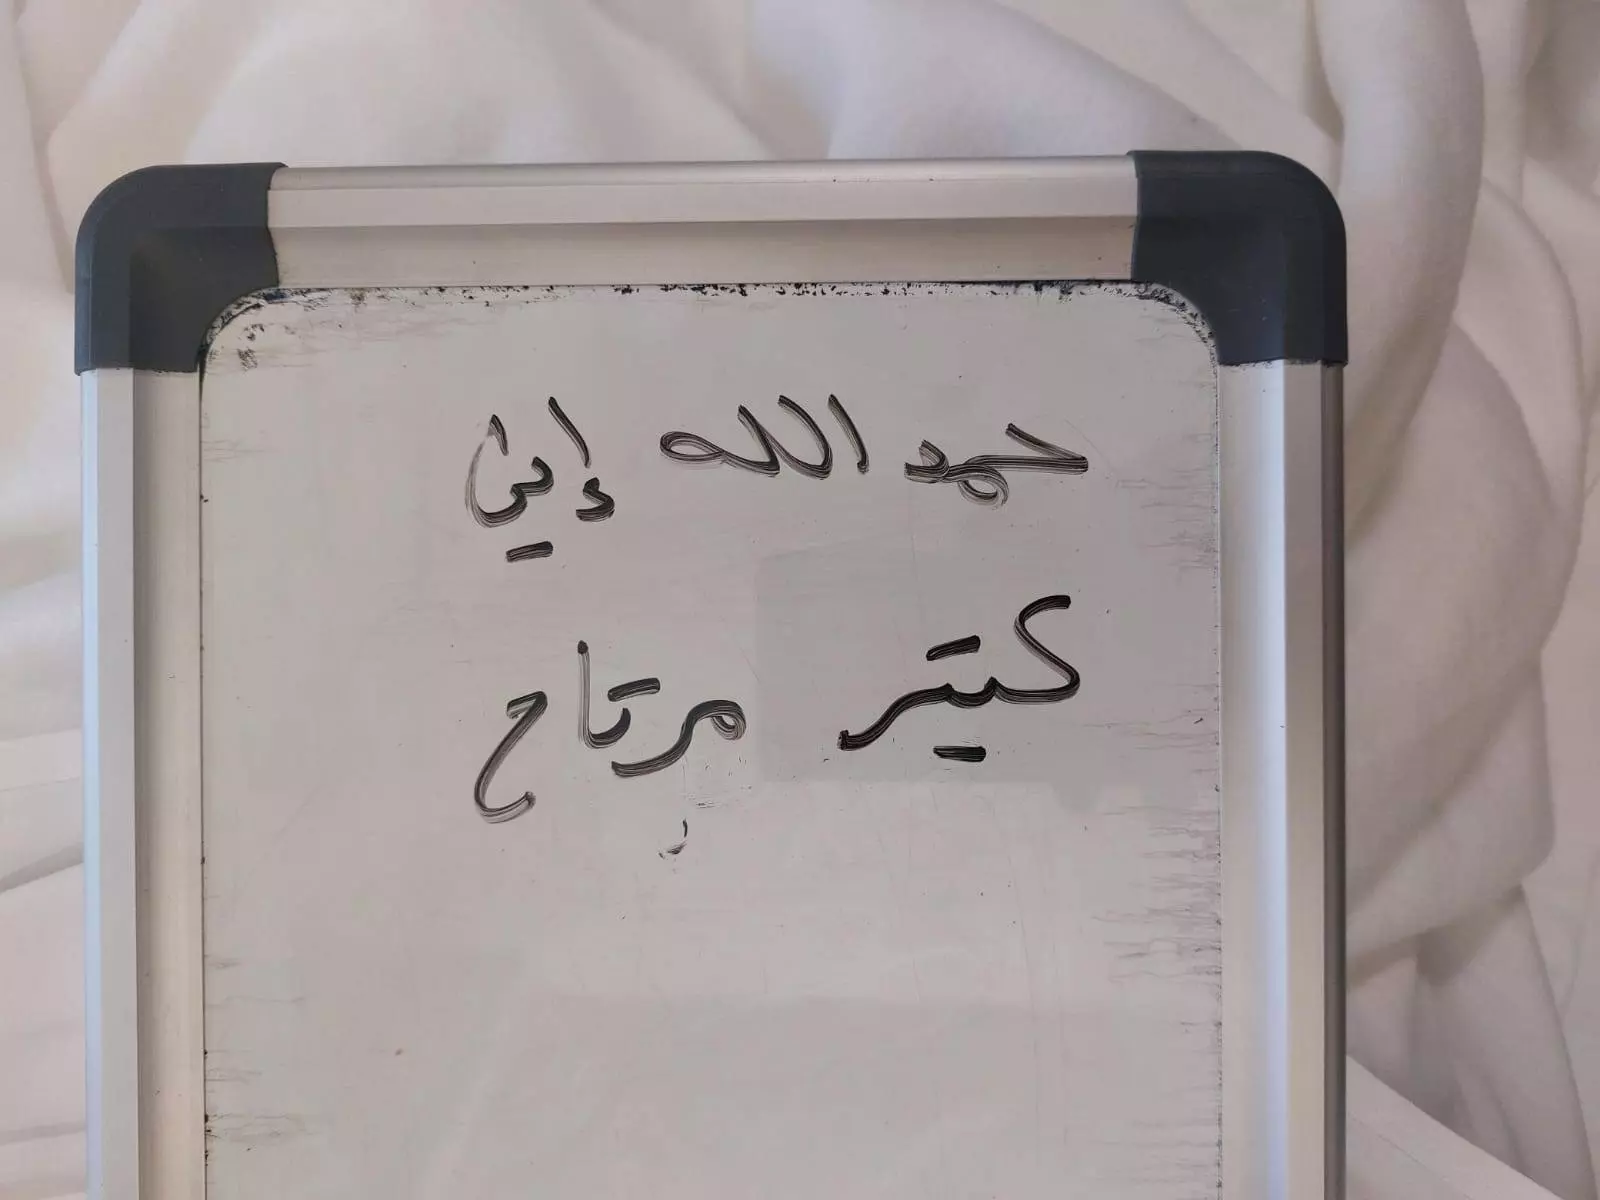 حمد الله إني
كتير مرتاح